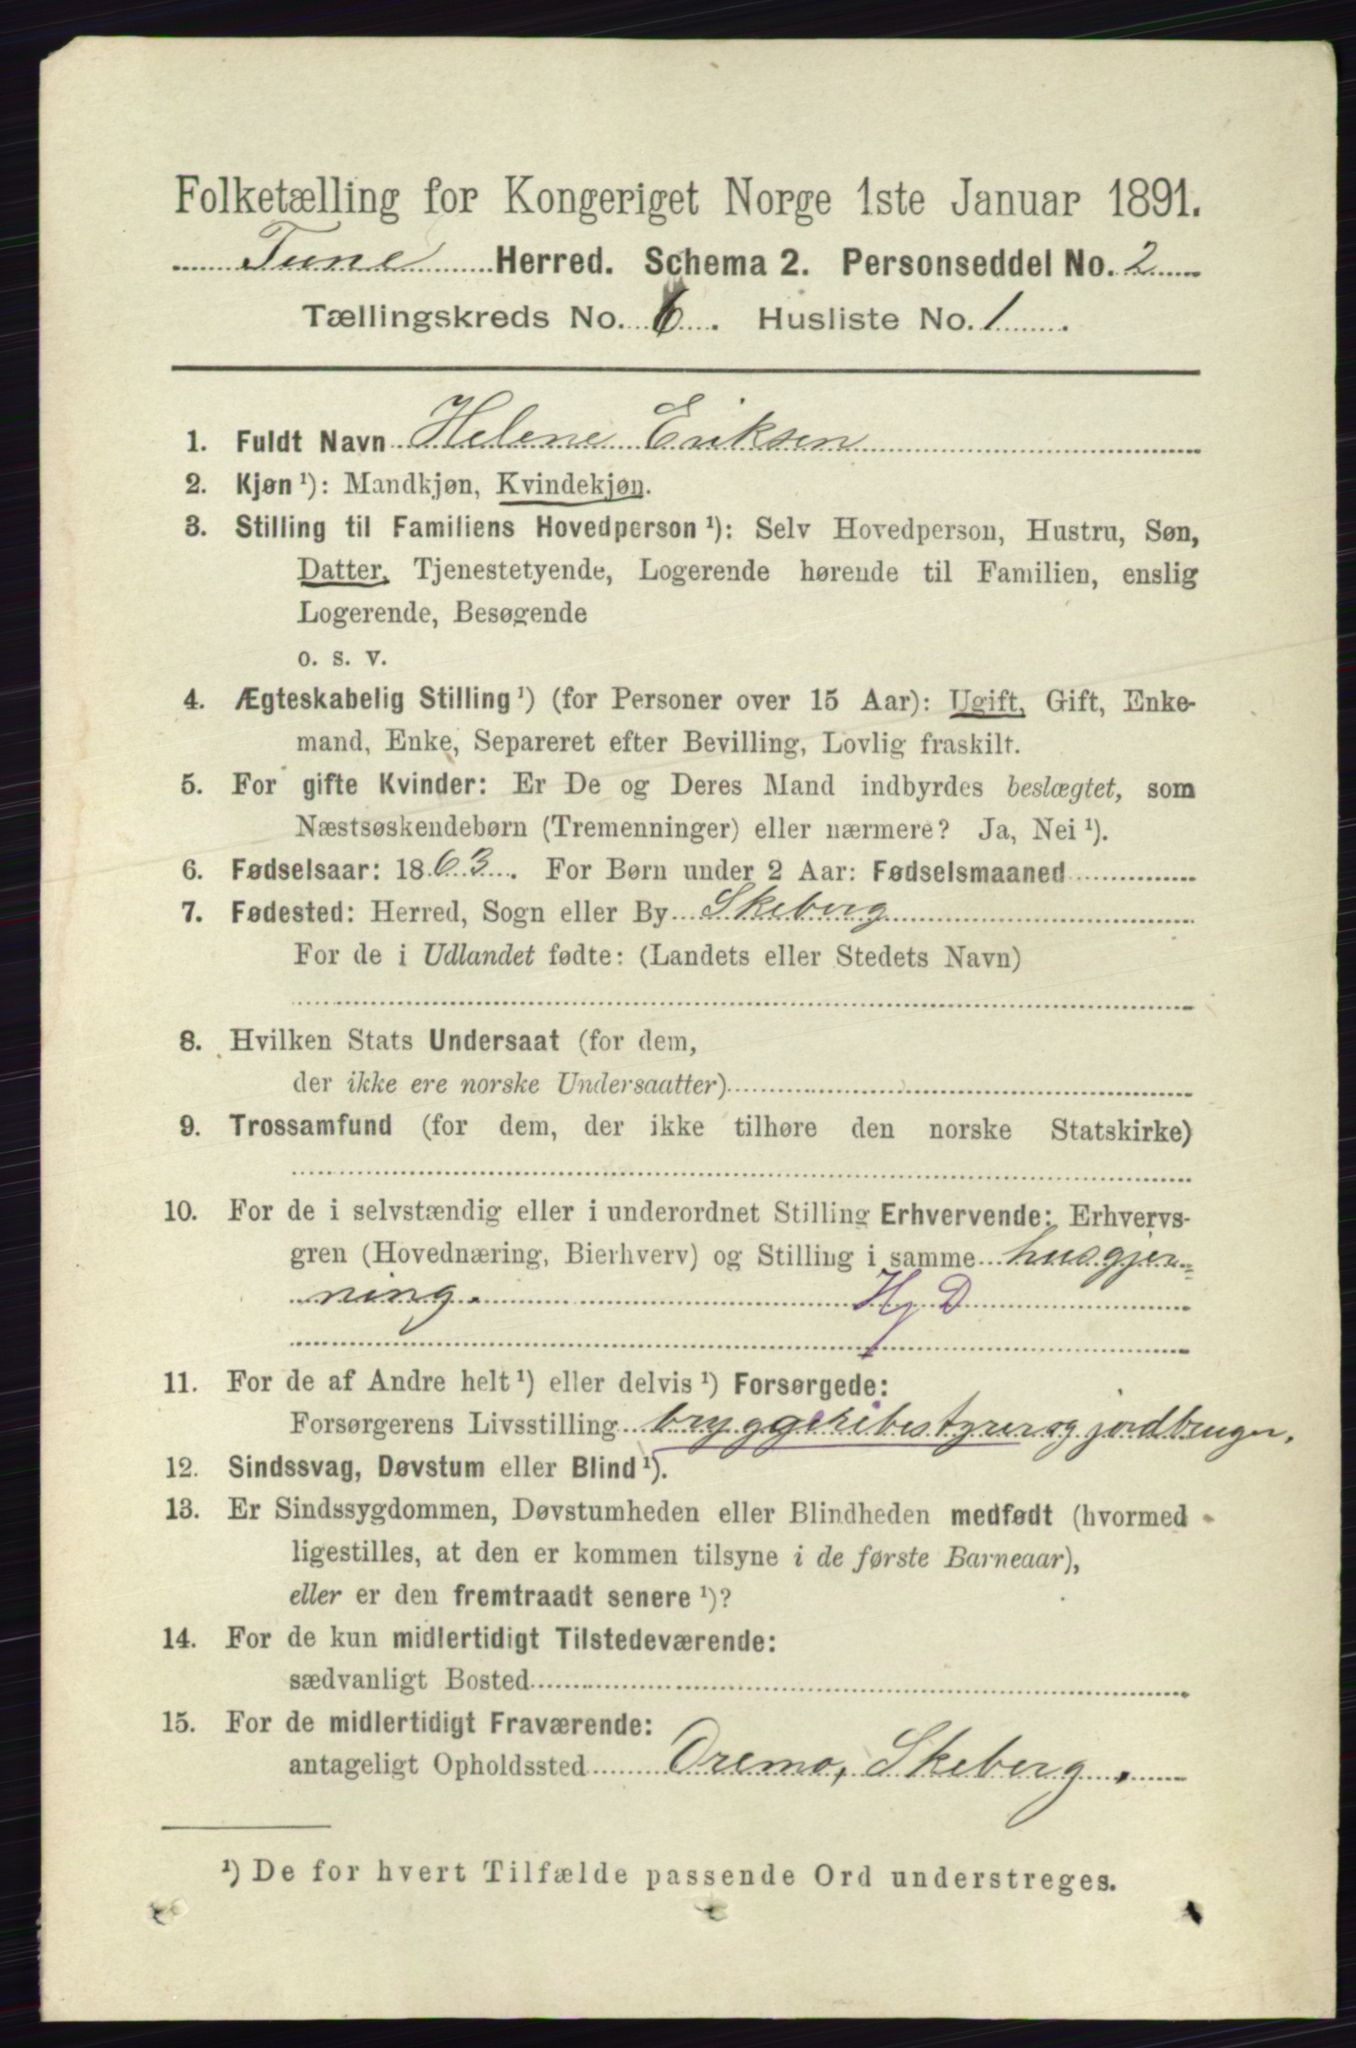 Folketælling for Kongeriget Norge 1ste Januar 1891.
Tune Herred. Schema 2. Personseddel No. 2
Tællingskreds No. 6. Husliste No. 1.
1. Fuldt Navn Helene Eriksen
2. Kjøn ¹): Mandkjøn, Kvindekjøn.
3. Stilling til Familiens Hovedperson ¹): Selv Hovedperson, Hustru, Søn,
Datter, Tjenestetyende, Logerende hørende til Familien, enslig
Logerende, Besøgende
o. s. v.
4. Ægteskabelig Stilling ¹) (for Personer over 15 Aar): Ugift, Gift, Enke-
mand, Enke, Separeret efter Bevilling, Lovlig fraskilt.
5. For gifte Kvinder: Er De og Deres Mand indbyrdes beslægtet, som
Næstsøskendebørn (Tremenninger) eller nærmere? Ja, Nei ¹).
6. Fødselsaar: 1863. For Børn under 2 Aar: Fødselsmaaned
7. Fødested: Herred, Sogn eller By Skeberg
For de i Udlandet fødte: (Landets eller Stedets Navn)
8. Hvilken Stats Undersaat (for dem,
der ikke ere norske Undersaatter)
9. Trossamfund (for dem, der ikke tilhøre den norske Statskirke)
10. For de i selvstændig eller i underordnet Stilling Erhvervende: Erhvervs-
gren (Hovednæring, Bierhverv) og Stilling i samme husgjer=
ning. Hj D
11. For de af Andre helt ¹) eller delvis ¹) Forsørgede:
Forsørgerens Livsstilling bryggeribestyrer og jordbruger.
12. Sindssvag, Døvstum eller Blind ¹).
13. Er Sindssygdommen, Døvstumheden eller Blindheden medfødt (hvormed
ligestilles, at den er kommen tilsyne i de første Barneaar),
eller er den fremtraadt senere ¹)?
14. For de kun midlertidigt Tilstedeværende:
sædvanligt Bosted
15. For de midlertidigt Fraværende:
antageligt Opholdssted Oremo, Skeberg.
¹) De for hvert Tilfælde passende Ord understreges.